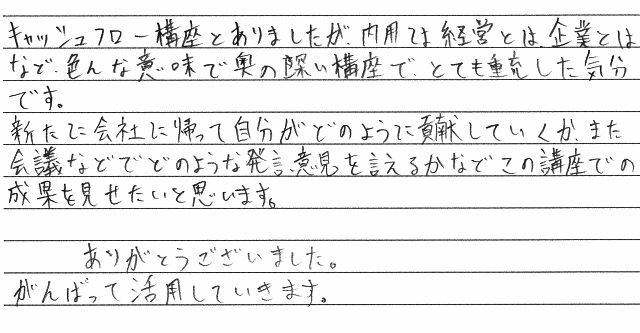 キャッシュフロー構座とありましたが、内用ては経営とは、企業とは
など、色んな意味で奥の深い構座で、とても重充した気分
です。
新たに会社に帰って自分がどのように貢献していくか、また
会議などでどのような発言、意見を言えるかなどこの講座での
成果を見せたいと思います。
ありがとうございました。
がんばって活用していきます。